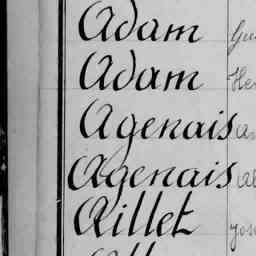 Adam
Adam
Agenais
Agenais
Aillet